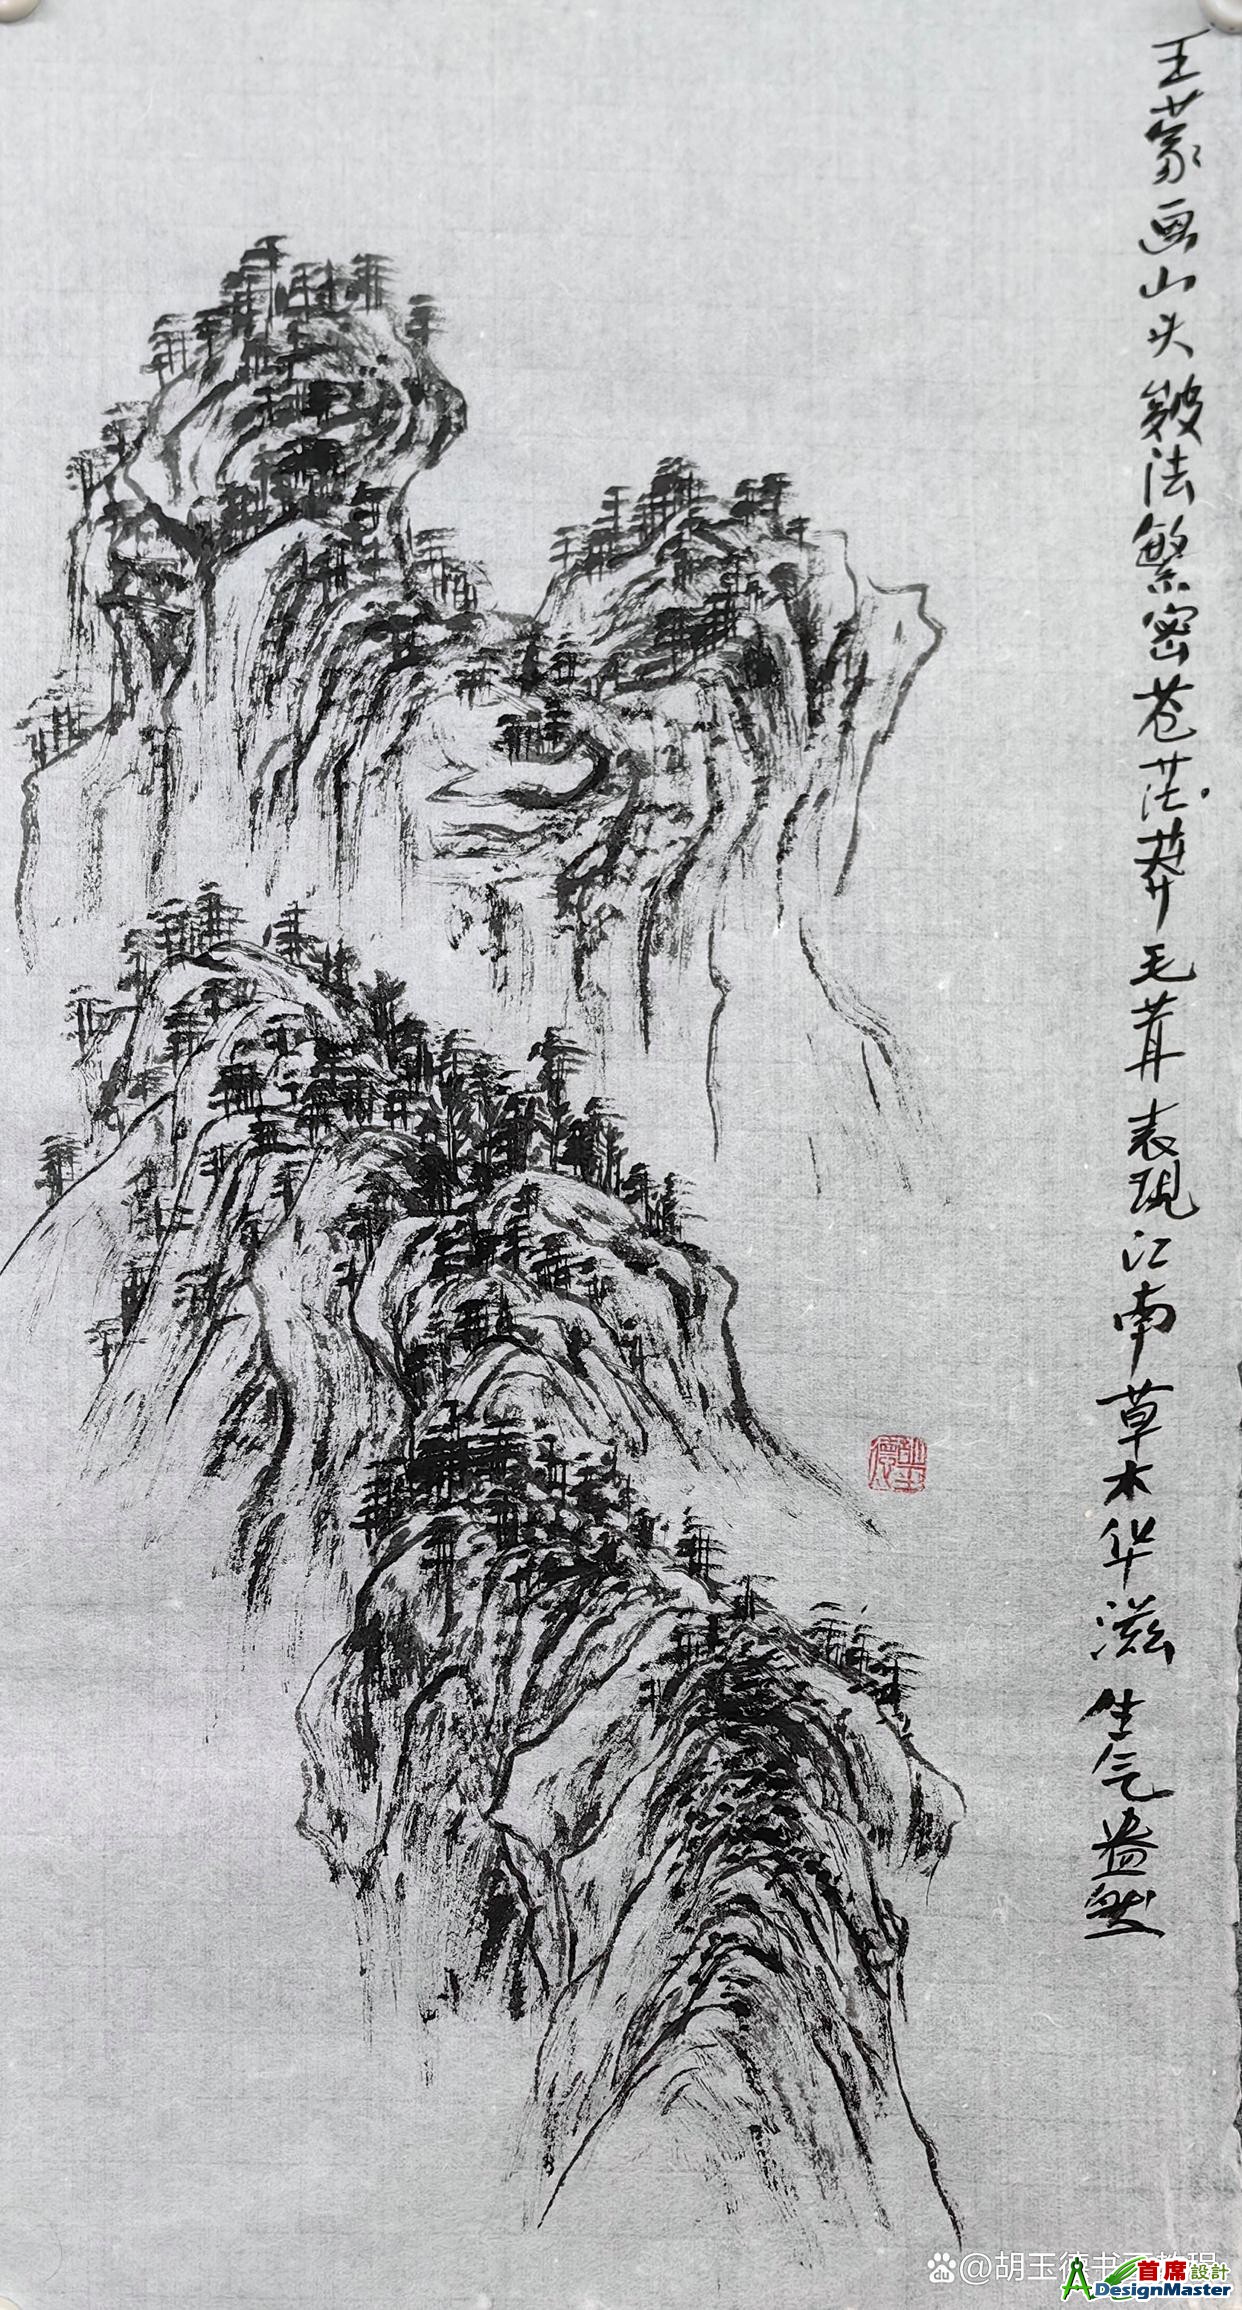 王蒙画山头皴法繁密苍茫莽毛茸表现江南草木华滋生气盎然
胡玉德
du @胡玉德书画教程
首席設計
ADesignMaster